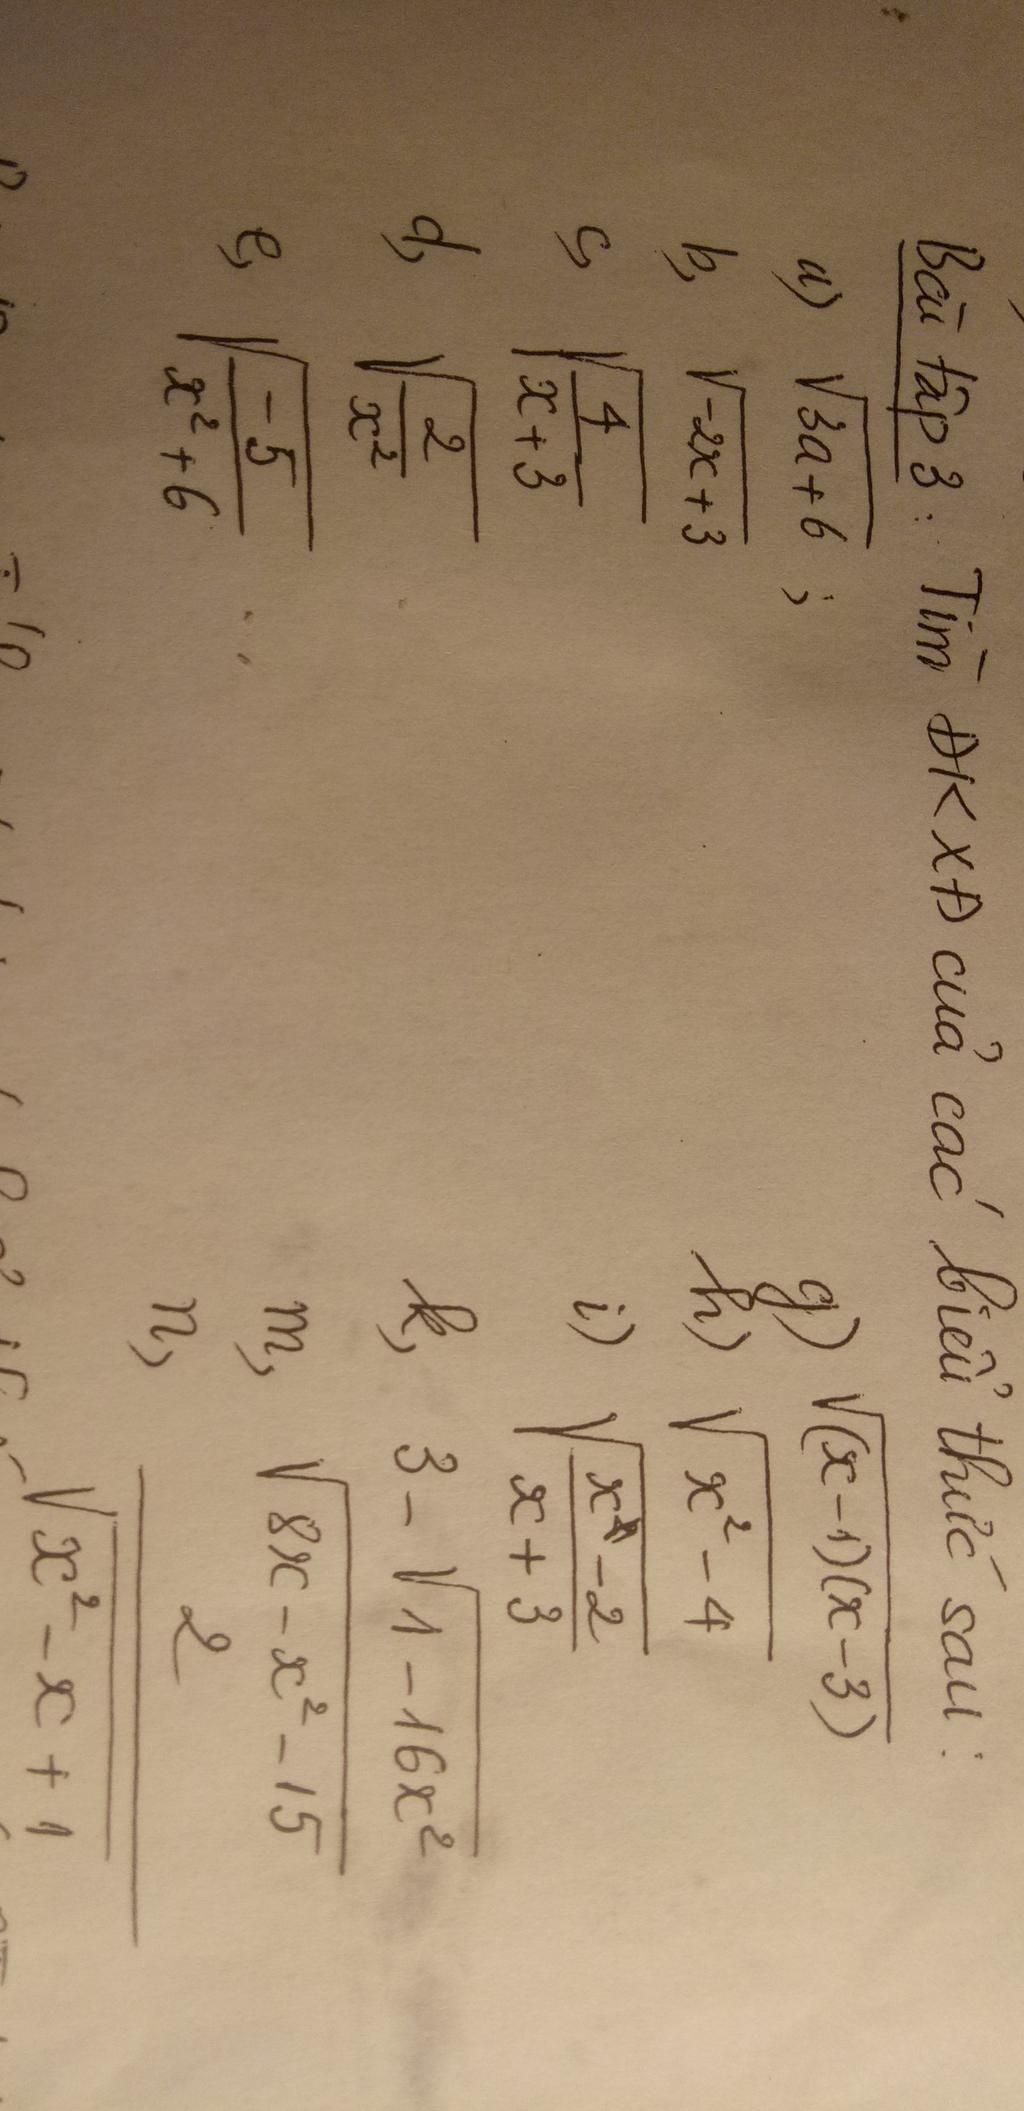 Bài tập 3: Tìm ĐKXĐ của các biểu thức sau:
a) √(3a+6) ;
b, √(-2x+3)
c, √(4/(x+3))
d, √(2/x²)
e, √(-5/(x²+6))
g) √((x-1)(x-3))
h) √(x²-4)
i) √((x-2)/(x+3))
k, 3-√(1-16x²)
m, √(8x-x²-15)
n, 2/√(x²-x+1)